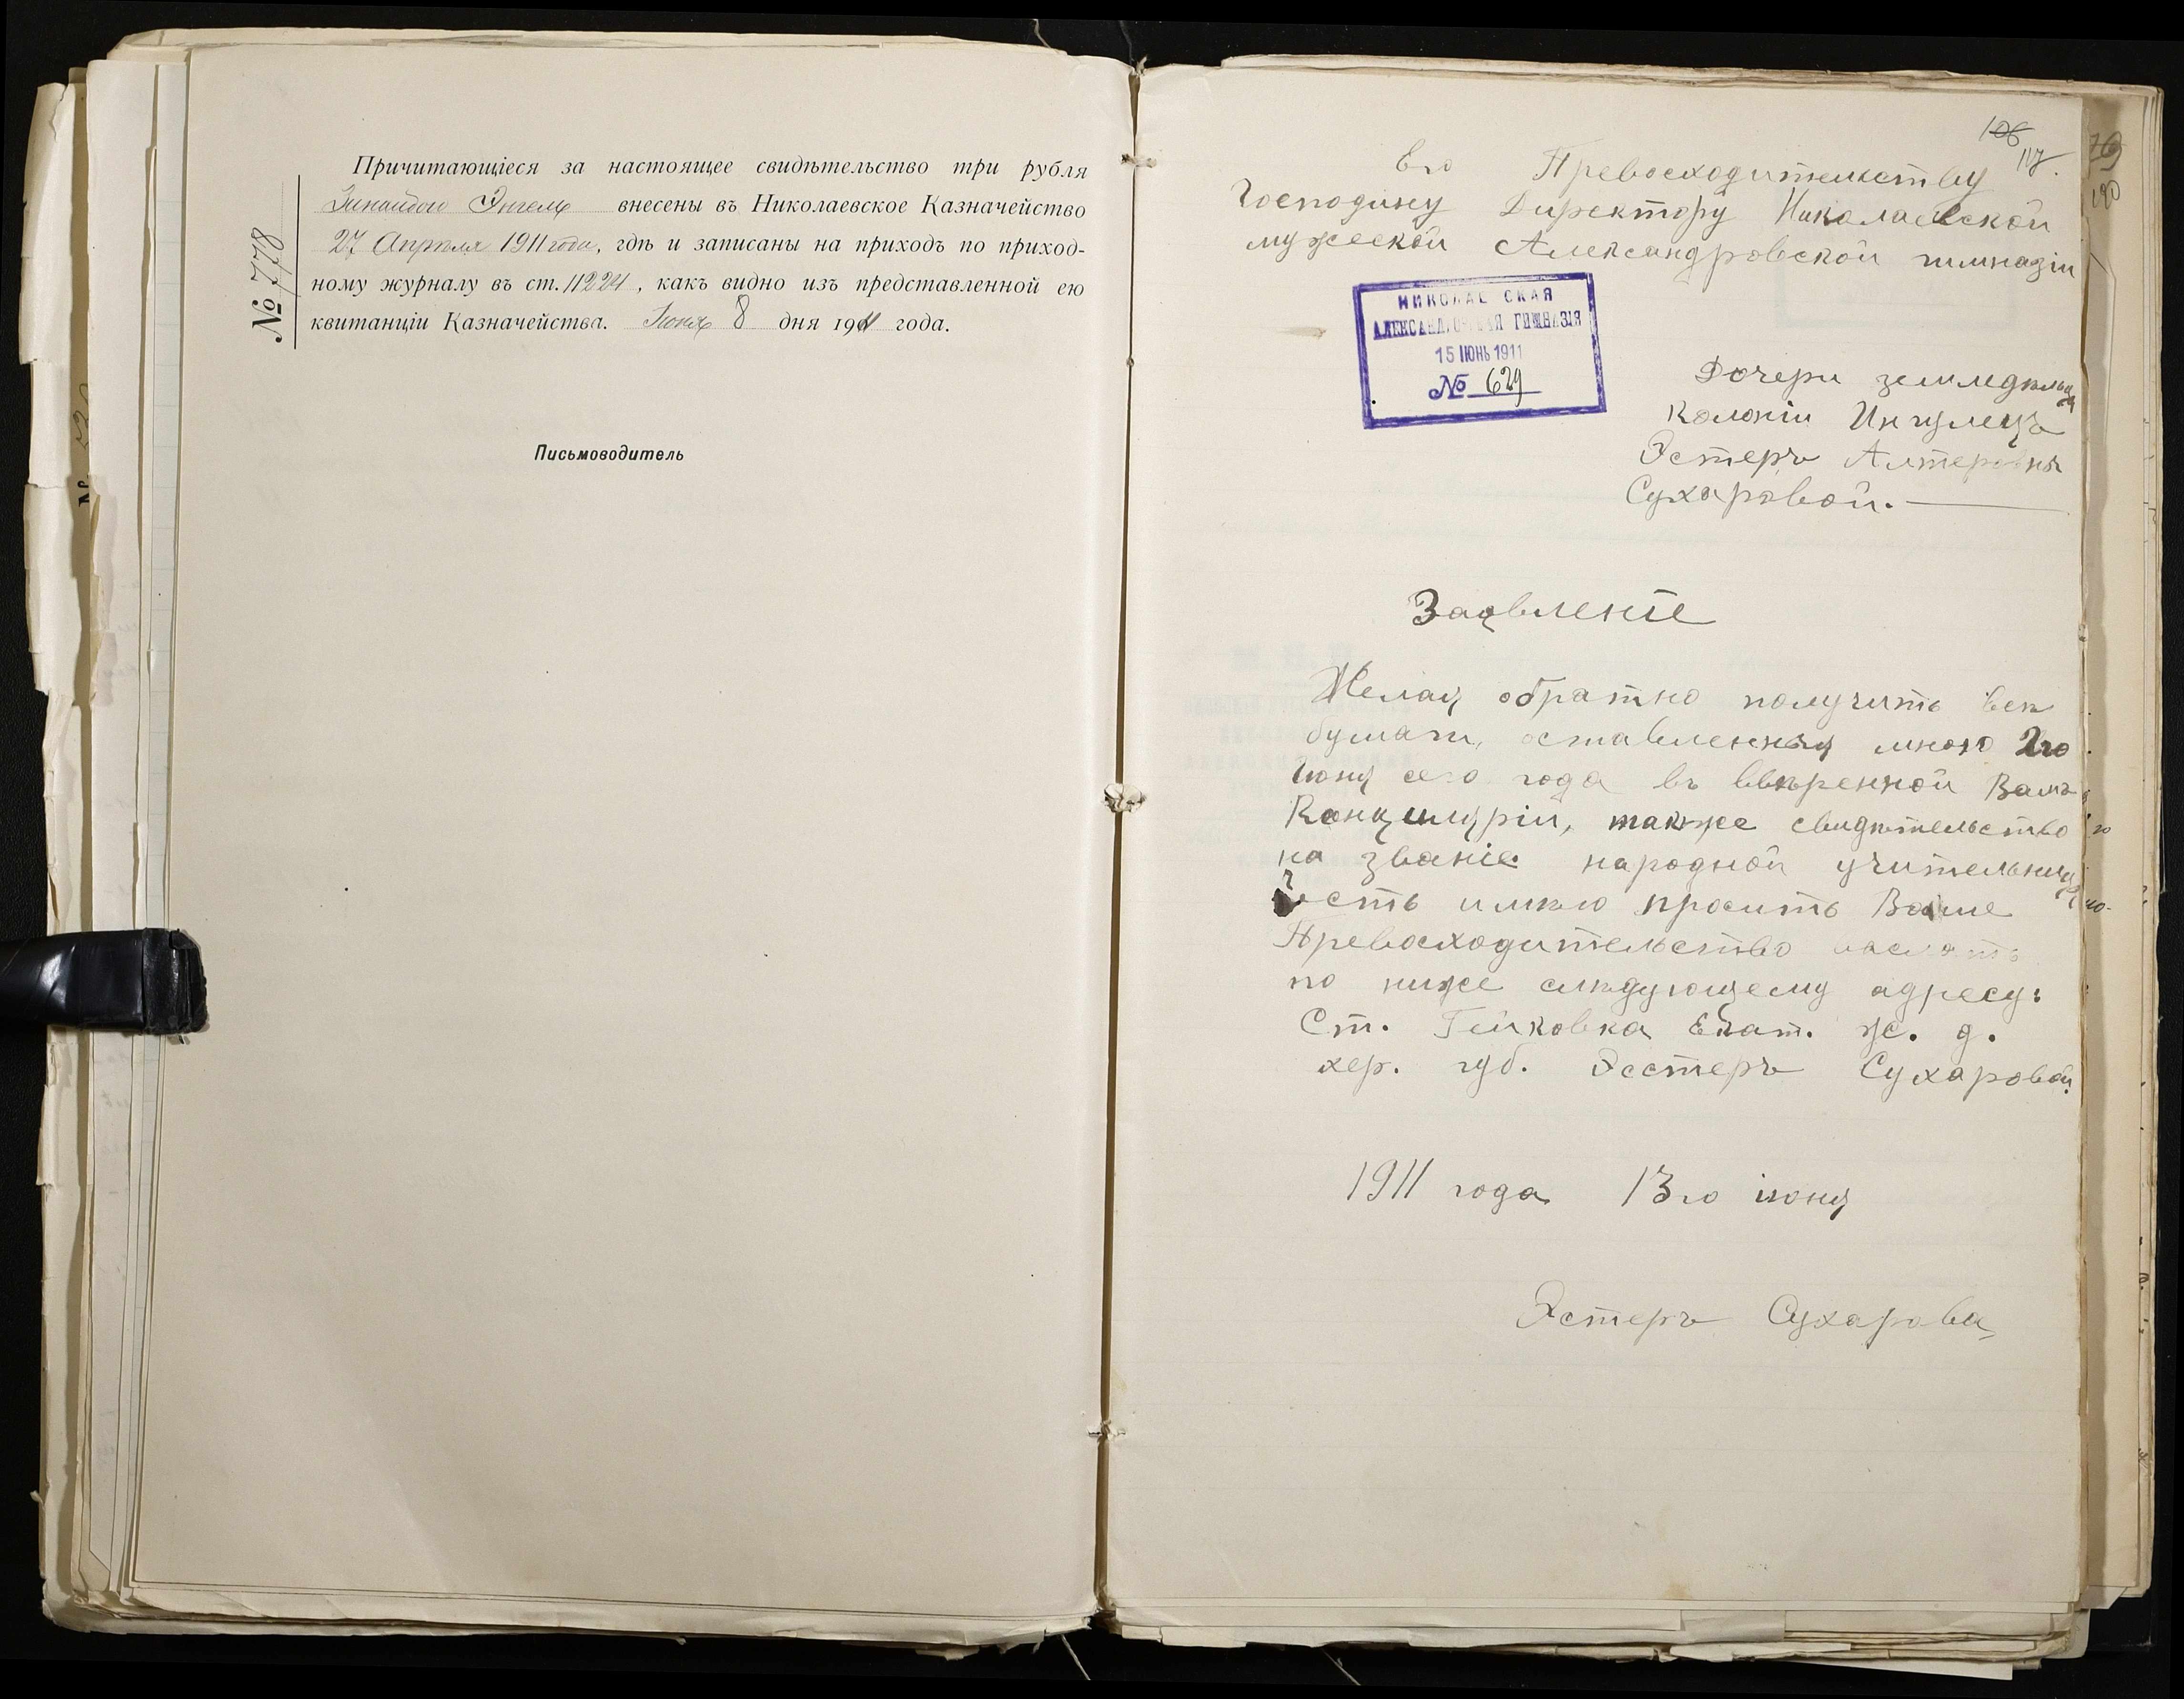 Причитающіеся за настоящее свидѣтельство три рубля
Зинаидою Энгель внесены въ Николаевское Казначейство
27 Апрѣля 1911 года, гдѣ и записаны на приходъ по приход-
ному журналу въ ст. 11224, какъ видно изъ представленной ею
квитанціи Казначейства. Іюня 8 дня 1911 года.
№ 778
Письмоводитель
106
117.
Его Превосходительству
Господину Директору Николаевской
мужеской Александровской гимназіи
НИКОЛАЕ СКАЯ
АЛЕКСАНДРОВСКАЯ ГИМНАЗІЯ
15 ІЮНЬ 1911
№ 629
Дочери земледѣльца
Колоніи Ингулецъ
Эстеръ Алтеровны
Сухаровой.
Заявленіе
Желая обратно получить всѣ
бумаги, оставленныя мною 2го
іюня сего года въ ввѣренной Вамъ
Канцеляріи, также свидѣтельство
на званіе народной учительницы
честь имѣю просить Ваше
Превосходительство выслать
по ниже слѣдующему адресу:
Ст. Гейковка Екат. ж. д.
хер. губ. Эстеръ Сухаровой.
1911 года 13го іюня
Эстеръ Сухарова